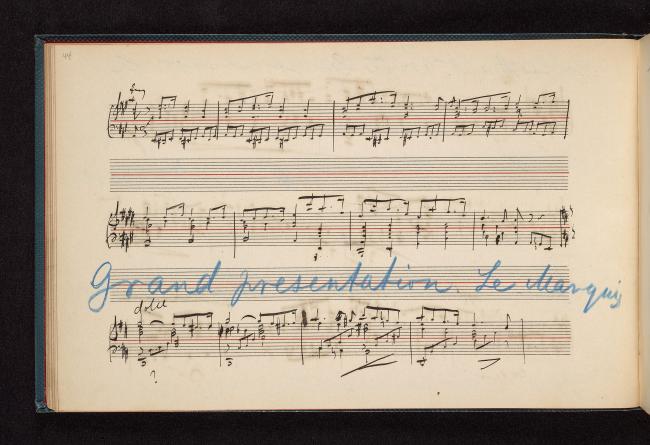 44
Grand presentation. Le Marquis
dolce
?